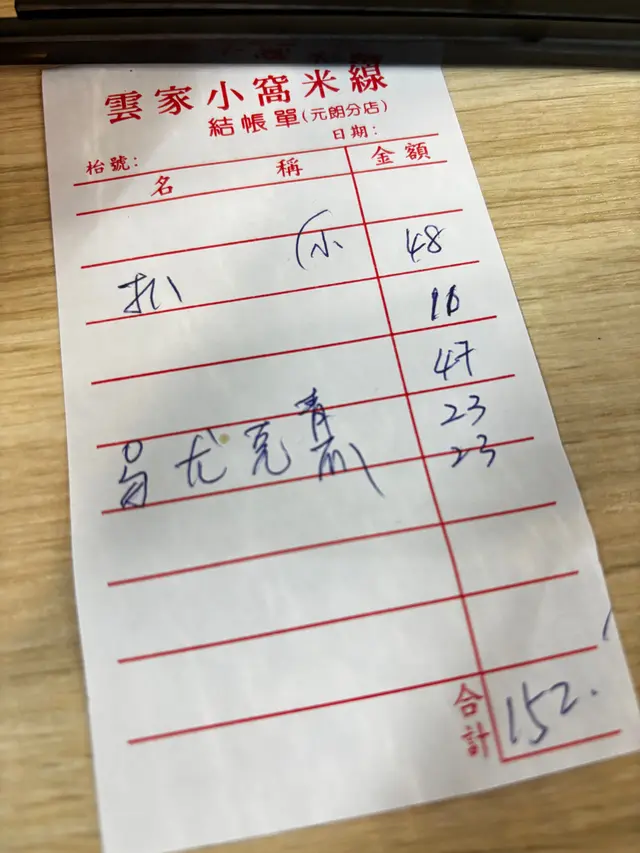 雲家小窩米線
結帳單(元朗分店)
日期:
枱號:
名稱 金額
小 48
扒 16
47
青 23
尤克瓜 23
合計 152.